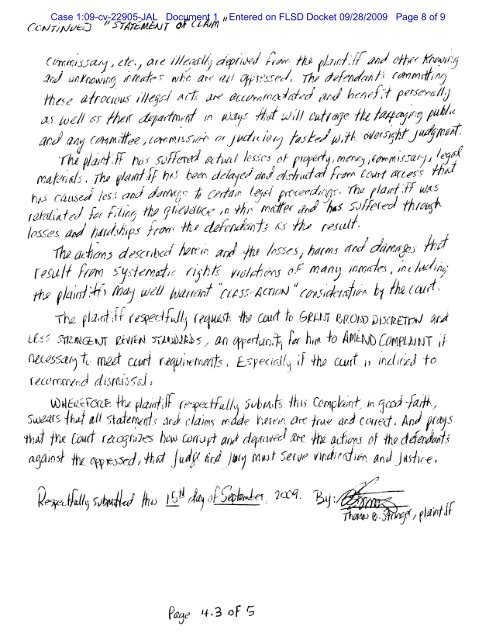 Case 1:09-cv-22905-JAL Document 1 Entered on FLSD Docket 09/28/2009 Page 8 of 9
CONTINUED "STATEMENT OF CLAIM"
commissary, etc., are illegally deprived from the plaintiff and other knowing
and unknowing inmates who are all oppressed. The defendants committing
these atrocious illegal acts are accommodated and benefit personally
as well as their department in ways that will outrage the taxpaying public
and any committee, commission or judiciary tasked with oversight judgment.
The plaintiff has suffered actual losses of property, money, commissary, legal
materials. The plaintiff has been delayed and obstructed from court access that
has caused loss and damage to certain legal proceedings. The plaintiff was
retaliated for filing the grievance in this matter and has suffered through
losses and hardships from the defendants as the result.
The actions described herein and the losses, harms and damages that
result from systematic rights violations of many inmates, including
the plaintiffs may well warrant "CLASS-ACTION" consideration by the court.
The plaintiff respectfully request the court to GRANT BROAD DISCRETION and
LESS STRINGENT REVIEW STANDARDS, an opportunity for him to AMEND COMPLAINT if
necessary to meet court requirements. Especially if the court is inclined to
recommend dismissal.
WHEREFORE the plaintiff respectfully submits this Complaint, in good-faith,
swears that all statements and claims made herein are true and correct. And prays
that the Court recognizes how corrupt and depraved are the actions of the defendants
against the oppressed, that Judge and Jury must serve vindication and justice.
Respectfully submitted this 15th day of September, 2009. By:
Thomas B. Stringer, plaintiff
Page 4.3 of 5